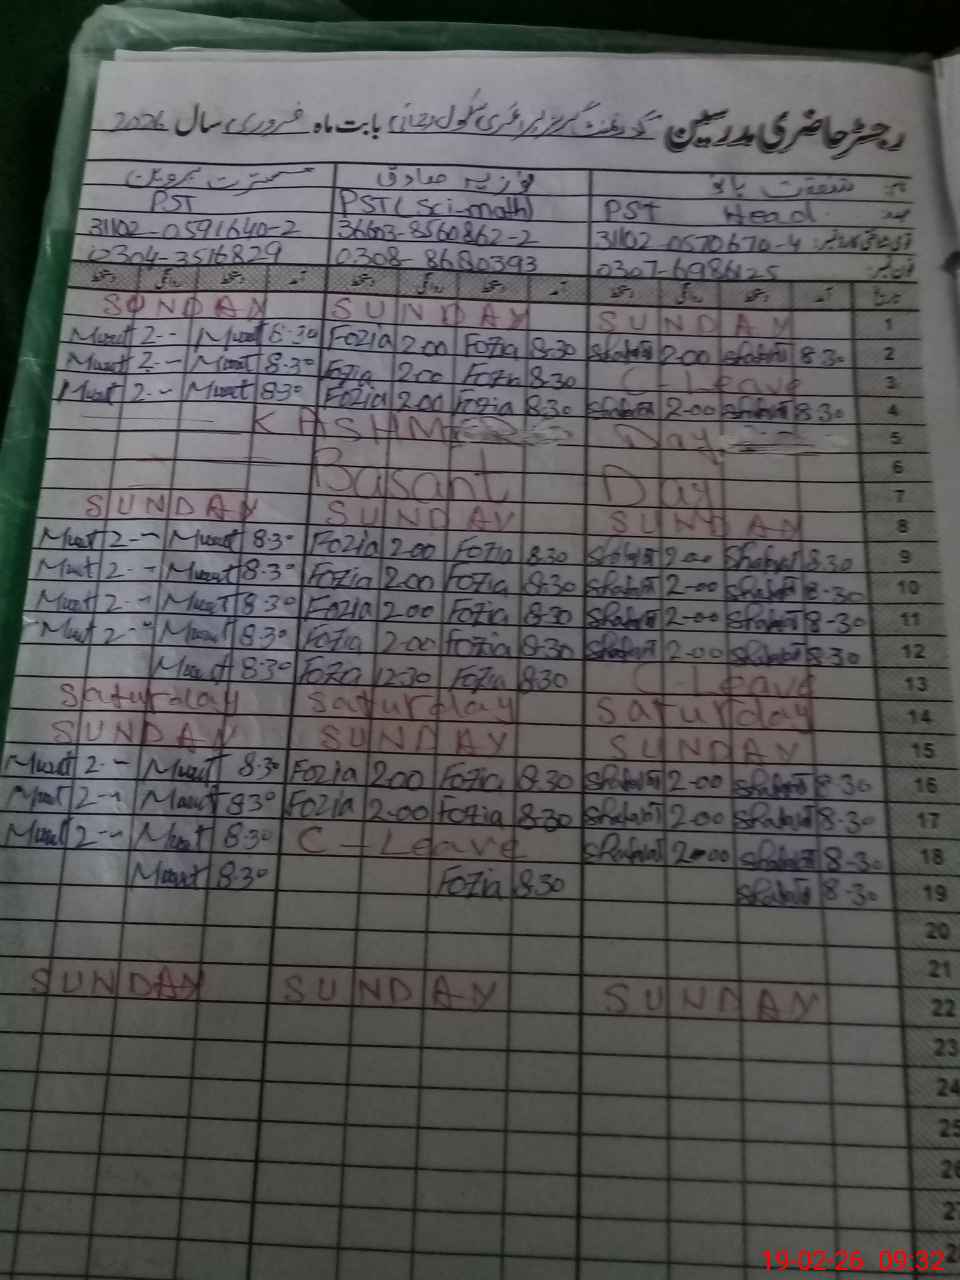 رجسٹر حاضری مدرسین گورنمنٹ گرلز پرائمری سکول بابت ماہ فروری سال 2026
نام: شفقت بانو فوزیہ صادق مسرت پروین
عہدہ PST Head PST (Sci-math) PST
31102-0570670-4 36603-8560862-2 31102-0591640-2
فون نمبر: 0307-6986125 0308-8680393 0304-3516829
تاریخ آمد دستخط روانگی دستخط آمد دستخط روانگی دستخط آمد دستخط روانگی دستخط
SUNDAY SUNDAY SUNDAY 1
Musrat 2-- Musrat 8-30 Fozia 200 Fozia 8.30 Shafqat 200 Shafqat 8 30 2
Musrat 2-- Musrat 8.30 Fozia 200 Fozia 8.30 C-Leave 3
Musrat 2-- Musrat 8.30 Fozia 200 Fozia 8.30 Shafqat 2-00 Shafqat 8 30 4
KASHMEER Day 5
6
Basant Day 7
SUNDAY SUNDAY SUNDAY 8
Musrat 2-- Musrat 8.30 Fozia 200 Fozia 8.30 Shafqat 200 Shafqat 8.30 9
Musrat 2-- Musrat 8.30 Fozia 2.00 Fozia 8.30 Shafqat 2-00 Shafqat 8-30 10
Musrat 2-- Musrat 8.30 Fozia 200 Fozia 8.30 Shafqat 2-00 Shafqat 8-30 11
Musrat 2-- Musrat 8.30 Fozia 2.00 Fozia 8.30 Shafqat 2-00 Shafqat 8-30 12
Musrat 8.30 Fozia 12.30 Fozia 8.30 C-Leave 13
Saturday Saturday Saturday 14
SUNDAY SUNDAY SUNDAY 15
Musrat 2-- Musrat 8.30 Fozia 200 Fozia 8.30 Shafqat 2-00 Shafqat 8-30 16
Musrat 2-- Musrat 830 Fozia 2.00 Fozia 8.30 Shafqat 2.00 Shafqat 8-30 17
Musrat 2-- Musrat 8.30 C-Leave Shafqat 2-00 Shafqat 8-30 18
Musrat 8.30 Fozia 8.30 Shafqat 8-30 19
20
21
SUNDAY SUNDAY SUNDAY 22
23
24
25
26
27
19-02-26 09:32